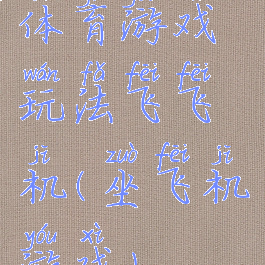 体育游戏
wán fǎ fēi fēi
玩法飞飞
jī zuò fēi jī
机(坐飞机
yóu xì
游戏)